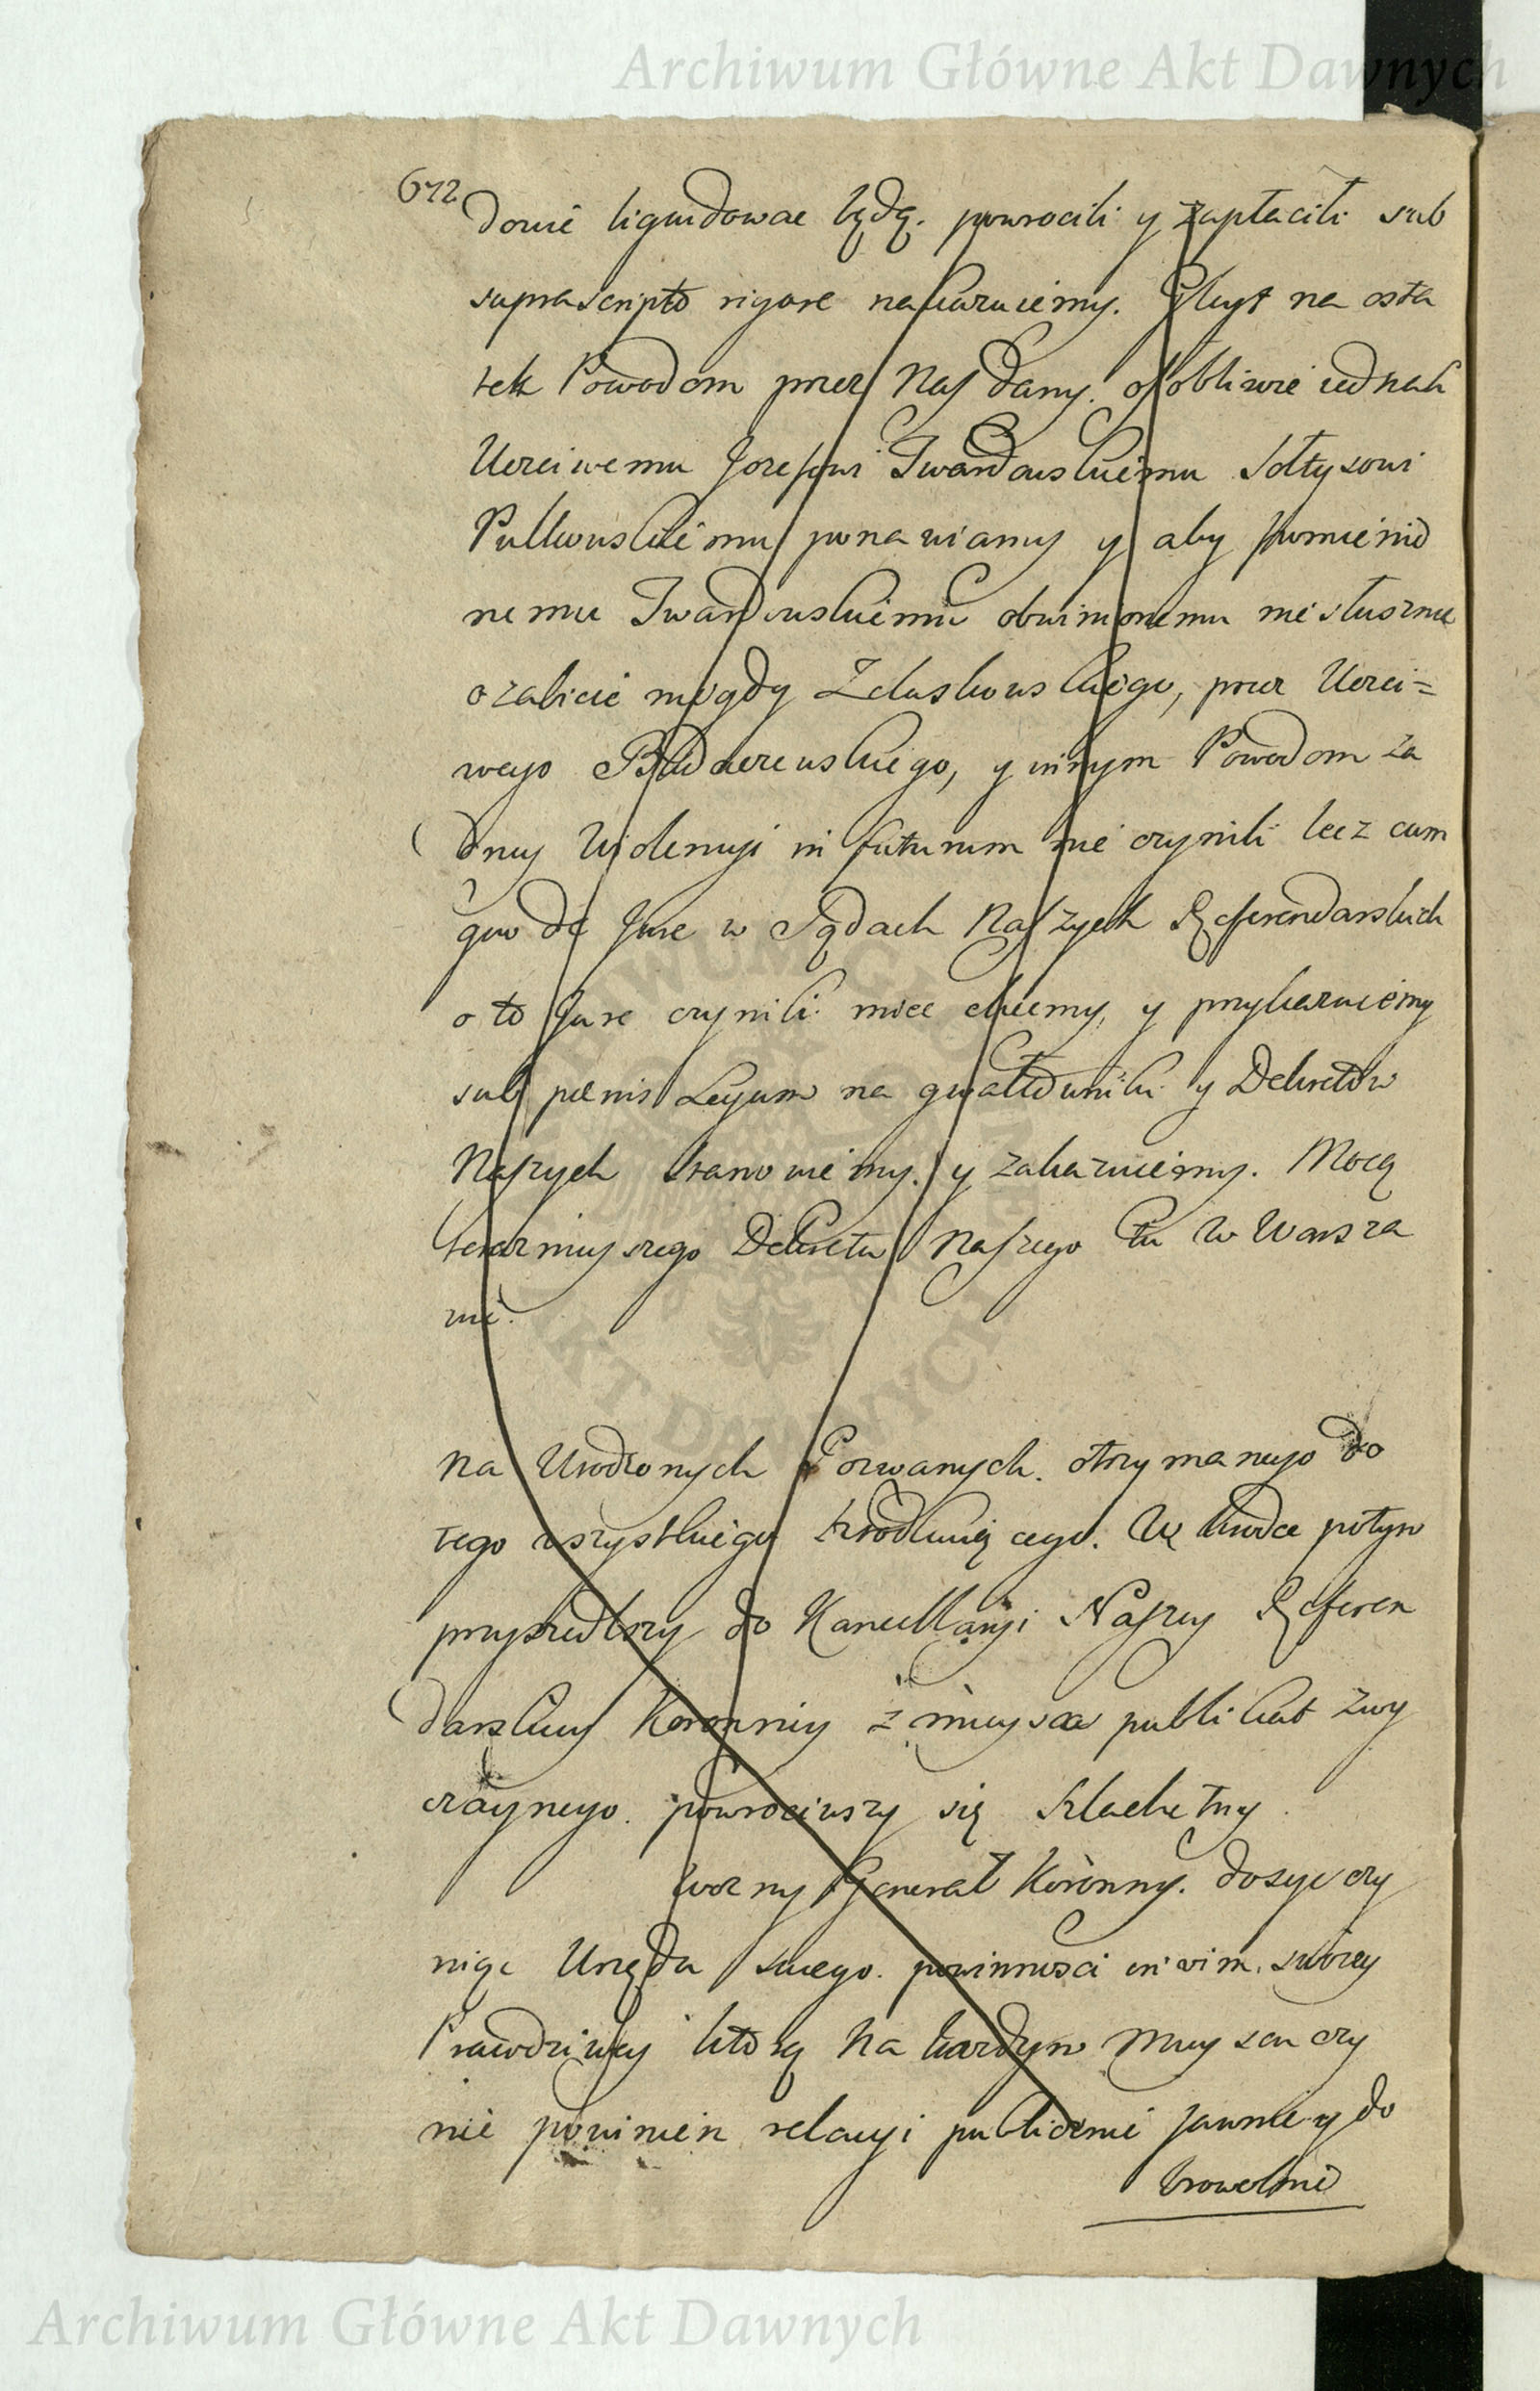 Archiwum Główne Akt Dawnych
672
downie liquidowac będą. powrocili y zapłacili sub
suprascripto rigore nakazuiemy. Gleyt na osta
tek Powodom przez Nas dany. osobliwie iednak
Ucziwemu Jozefowi Twardowskiemu Sołtysowi
Pulkowskiemu ponawiamy y aby pomienio
nemu Twardowskiemu obwinionemu niesłusznie
o zabicie niegdy Zeluskowskiego, przez Uczci=
wego y innym Powodom ża
dney Violencyi in futurum nie czynili lecz cum
quo de Jure w Sądach Naszych Referendarskich
o to Jure czynili miec chcemy, y przykazuiemy
sub penis Legum na gwałtowniki y Dekretow
Naszych stanowiemy. y zakazuiemy. Mocą
teraznieyszego Dekretu Naszego tu w Warsza
wie.
Na Urodzonych Pozwanych. otrzymanego do
tego wszystkiego przyszłym
przyszedłszy do Kancellaryi Naszey Referen
darskiey Koronney z mieysca publikat zwy
czaynego. powrociwszy się Szlachetny
wozny Generał Koronny. dosyc czy
niąc Urzędu swego. powinnosci in vim swoiey
Prawdziwey ktorą na kazdym mieyscu czy
nic powinien relacyi publicznie jawnie y do
browolnie
ARCHIWUM GŁÓWNE AKT DAWNYCH
Archiwum Główne Akt Dawnych